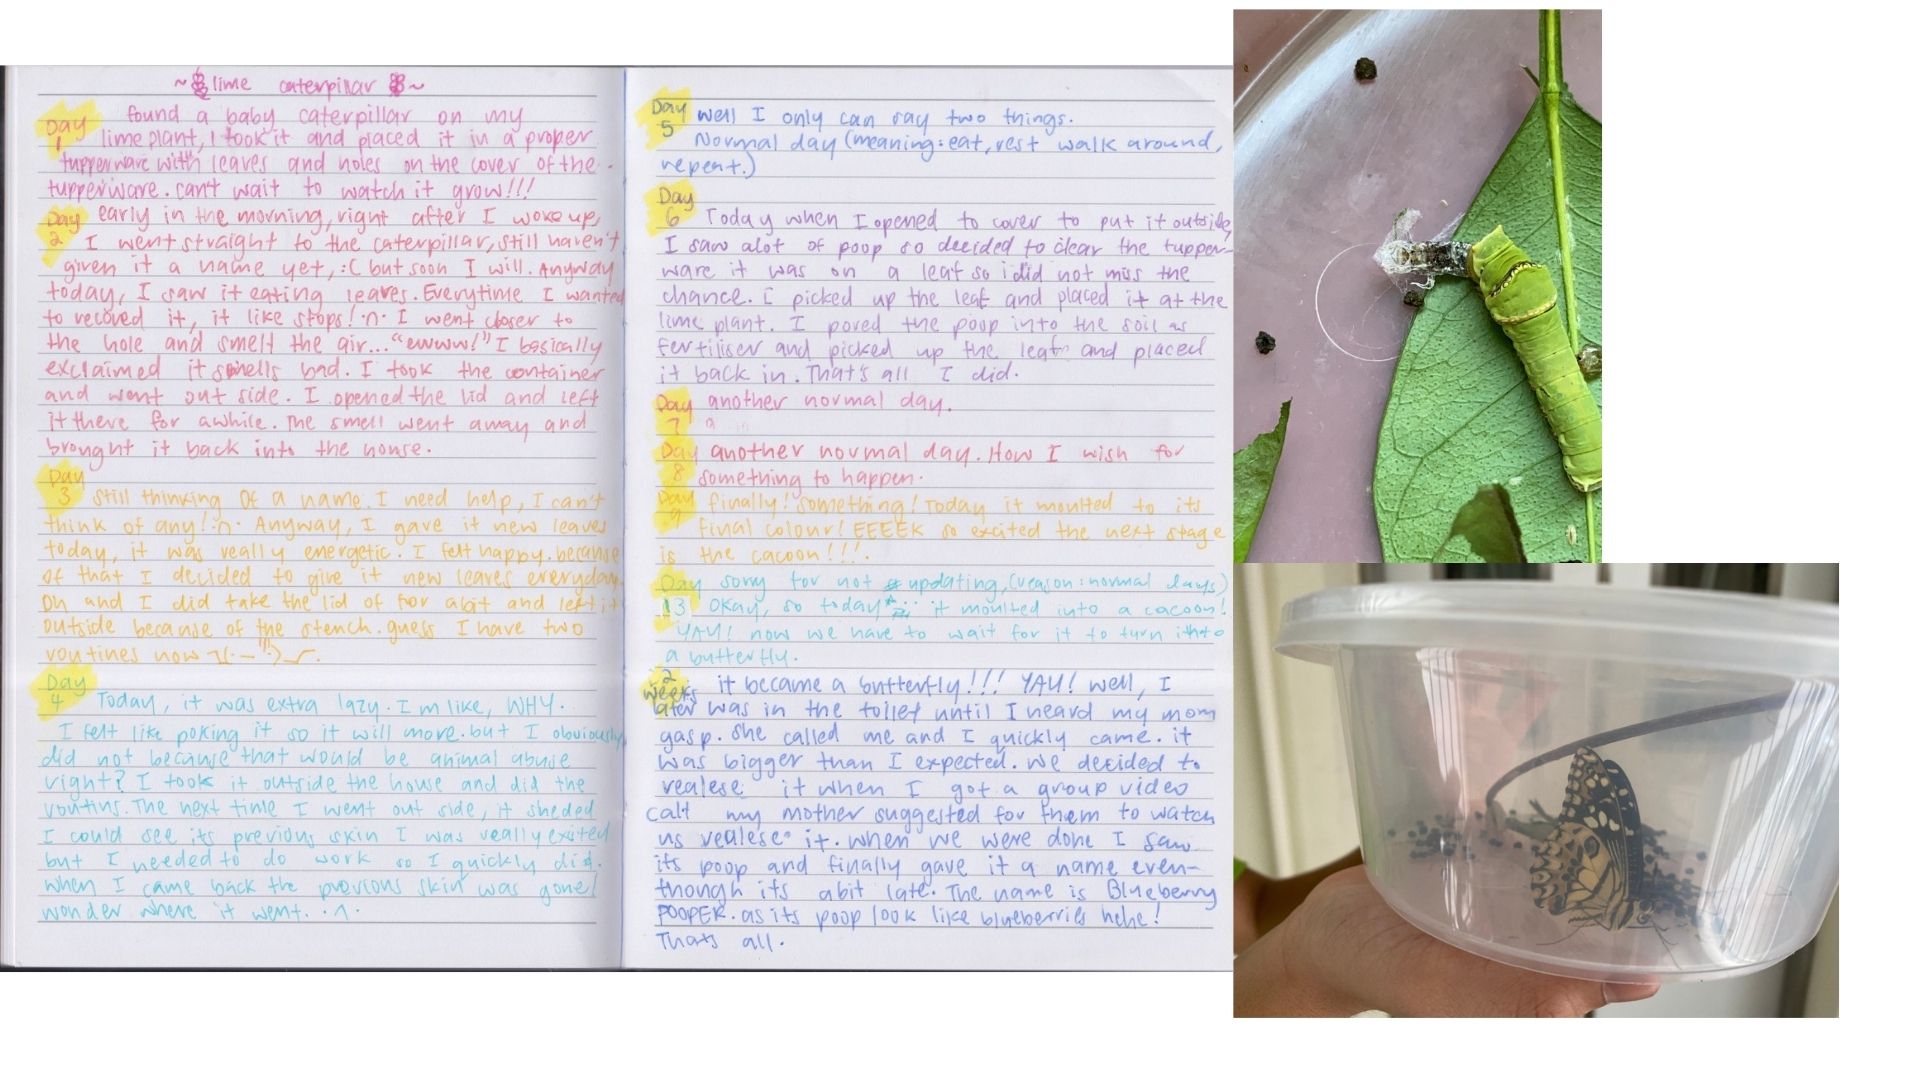 ~ lime caterpillar ~
Day 1 found a baby caterpillar on my
lime plant, I took it and placed it in a proper
tupperware with leaves and holes on the cover of the
tupperware. can't wait to watch it grow!!!
Day 2 early in the morning, right after I woke up,
I went straight to the caterpillar, still haven't
given it a name yet, :( but soon I will. Anyway
today, I saw it eating leaves. Everytime I wanted
to recoved it, it like stops! ·n· I went closer to
the hole and smelt the air... "ewww!" I basically
exclaimed it smells bad. I took the container
and went out side. I opened the lid and left
it there for awhile. The smell went away and
brought it back into the house.
Day 3 still thinking Of a name. I need help, I can't
think of any! ·n· Anyway, I gave it new leaves
today, it was really energetic. I felt happy. because
of that I decided to give it new leaves everyday.
Oh and I did take the lid of for abit and left it
outside because of the stench. guess I have two
routines now
Day 4 Today, it was extra lazy. I'm like, WHY.
I felt like poking it so it will move. but I obviously
did not because that would be animal abuse
right? I took it outside the house and did the
routins. The next time I went out side, it sheded
I could see its previous skin I was really exited
but I needed to do work so I quickly did.
when I came back the previous skin was gone!
wonder where it went. . ^ .
Day 5 well I only can say two things.
Normal day (meaning: eat, rest walk around,
repeat.)
Day 6 Today when I opened to cover to put it outside,
I saw alot of poop so decided to clear the tupper-
ware it was on a leaf so i did not miss the
chance. I picked up the leaf and placed it at the
lime plant. I pored the poop into the soil as
fertiliser and picked up the leaf and placed
it back in. That's all I did.
Day 7 another normal day.
Day 8 another normal day. How I wish for
something to happen.
Day 9 finally! something! Today it moulted to its
final colour! EEEEK so excited the next stage
is the cacoon!!!.
Day 13 sorry for not updating, (reason: normal days)
Okay, so today it moulted into a cacoon!
YAY! now we have to wait for it to turn into
a butterfly.
2 weeks later it became a butterfly!!! YAY! well, I
was in the toilet until I heard my mom
gasp. she called me and I quickly came. it
was bigger than I expected. we decided to
realese it when I got a group video
call my mother suggested for them to watch
us realese it. when we were done I saw
its poop and finally gave it a name even-
though its abit late. The name is Blueberry
POOPER. as its poop look like blueberries hehe!
Thats all.